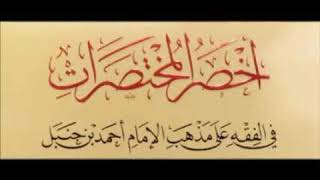 أَخْصَرُ المُخْتَصَرَاتِ
فِي الفِقْهِ عَلَى مَذْهَبِ الإِمَامِ أَحْمَدَ بْنِ حَنْبَل